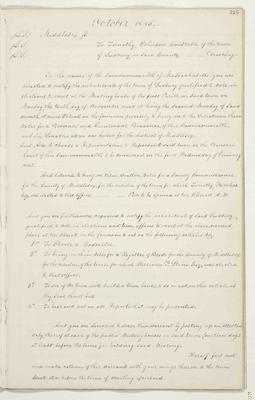 325
October 1845.
Middlesex ss
To Timothy Constable of the town
of Sudbury in said County Greeting.
In the name of the Commonwealth of Massachusetts you are
directed to notify the inhabitants of the town of Sudbury qualified to vote in
elections to meet at the Meeting house of the first Parish in said town on
Monday the tenth day of November next it being the second Monday of said
month at o'clock in the forenoon precisely to bring in to the Selectmen their
Votes for a Governor and Lieutenant Governor of this Commonwealth
and Senators for the district of Middlesex.
And Also to choose a Representative to Represent said town in the General
Court of this Commonwealth to be convened on the first Wednesday of January
next
And likewise to bring in their written Votes for a County Commissioner
for the County of Middlesex for the residue of the term for which Timothy
Esq was elected to that Office Poll to be opened at o'clock A.M.
And you are furthermore required to notify the inhabitants of said Sudbury
qualified to vote in elections and town affairs to meet at the above named
place at o'clock in the forenoon to act on the following articles viz
1st To Choose a Moderator.
2d To bring in their Votes for a Register of Deeds for the County of Middlesex
for the residue of the term for which William F. Stone Esq was elected
to that office.
3d To see if the town will build a town house, or act on this article as
they shall think best.
4th To hear and act on all Reports that may be presented.
And you are directed to serve this warrant by posting up an attested
copy thereof at each of the public Meeting houses in said town fourteen days
at least before the time for holding said Meeting.
Hereof fail not
and make return of this warrant with your doings thereon to the town
Clerk at or before the time of meeting aforesaid